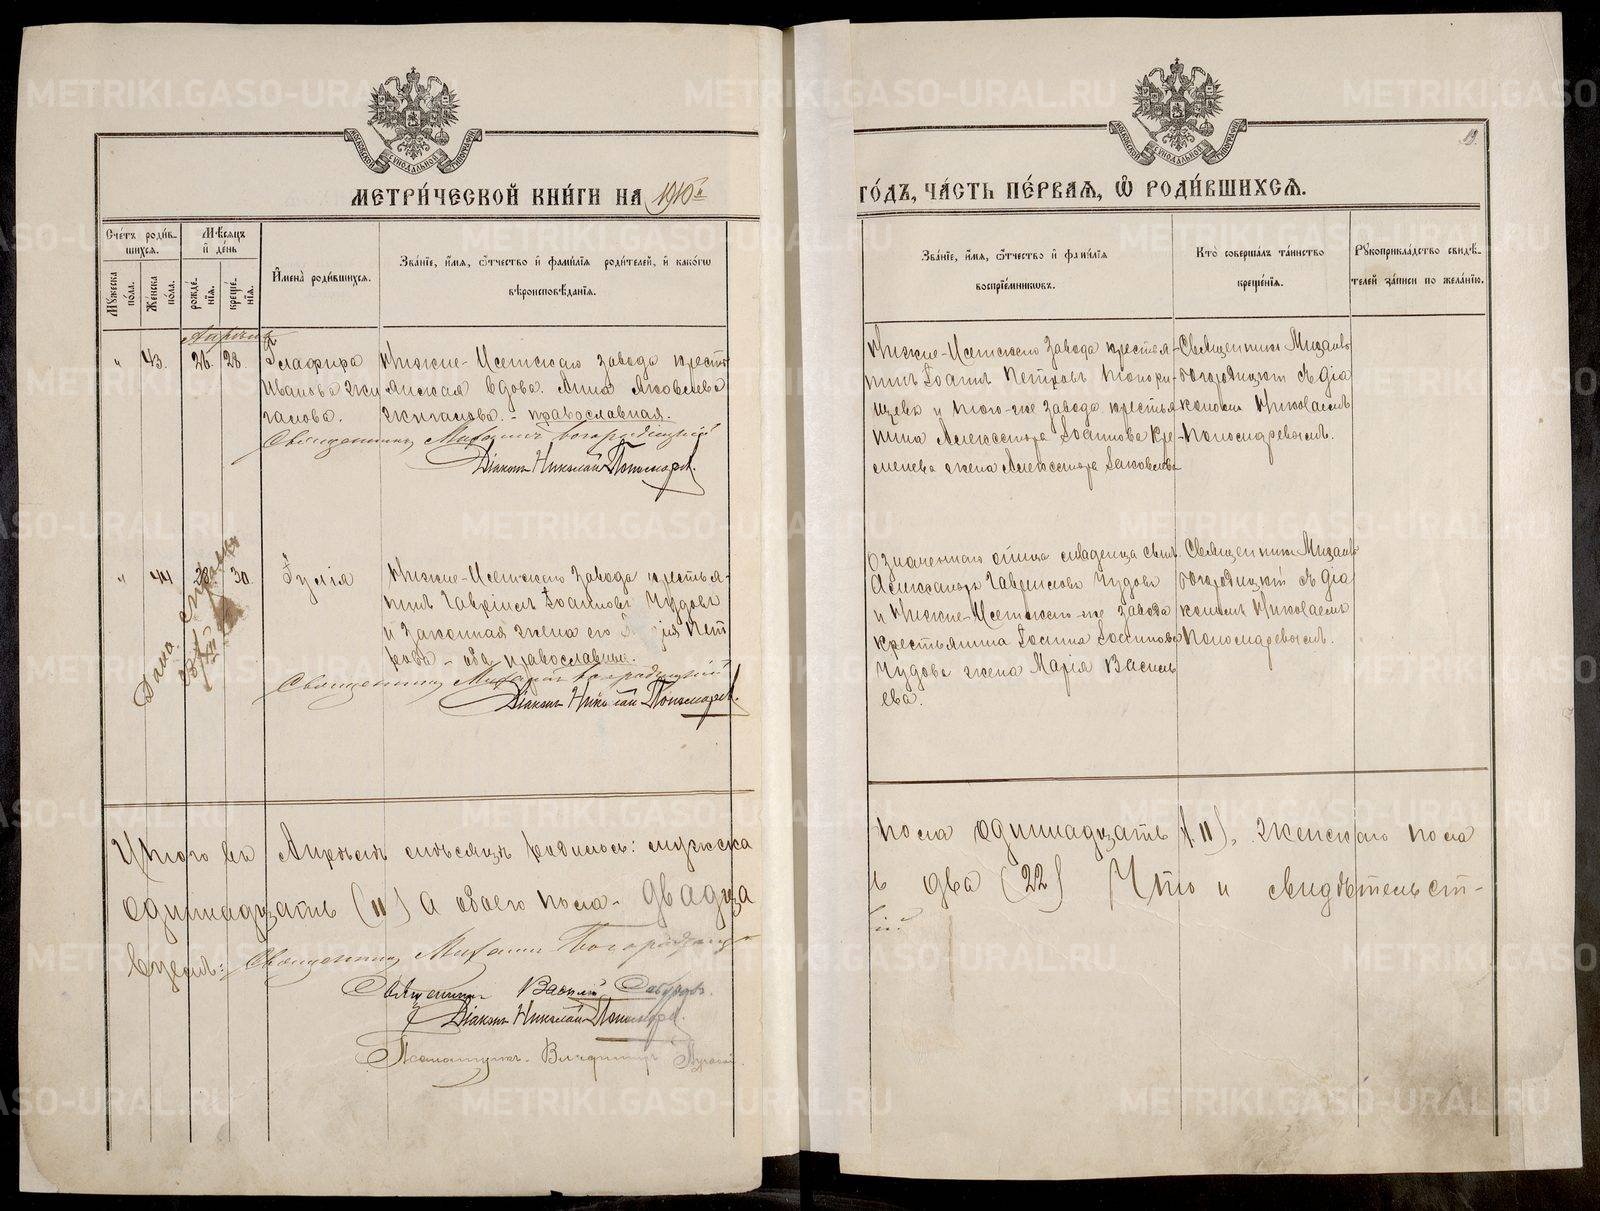 МЕТРИ́ЧЕСКОЙ КНИ́ГИ НА 1910й
ГО́ДЪ, ЧА́СТЬ ПЕ́РВАЯ, Ѽ РОДИ́ВШИХСЯ.
19.
Сче́тъ роди́в-
шихся.
Мѣ́сяцъ
и де́нь
Му́жеска по́ла.
Же́нска по́ла.
рожде́-
нія.
креще́-
нія.
Имена̀ роди́вшихся.
Зва́ніе, и́мя, ѻ́тчество и фами́лія роди́телей, и како́гѡ
вѣроисповѣ́данія.
Зва́ніе, и́мя, ѻ́тчество и фами́лія
воспріе́мниковъ.
Кто̀ соверша́лъ та́инство
креще́нія.
Рꙋкоприкла́дство свидѣ́-
телей за́писи по жела́нію.
Апрѣль
" 43. 26. 28.
Глафира
Иванова
Нижне-Исетскаго завода кресть
янская вдова Анна Яковлева
православная.
Священникъ Михаилъ Богородицкій
Діаконъ Николай Пономаревъ.
Нижне-Исетскаго завода крестья-
нинъ Іоаннъ Петровъ
и того-же завода крестья
нина Александра Іоаннова Кре
менева жена Александра Іаковлева
Священникъ Михаилъ
Богородицкій съ діа
кономъ Николаемъ
Пономаревымъ.
" 44 28. 30.
Іулія
Нижне-Исетскаго завода крестья-
нинъ Гавріилъ Іоанновъ Чудовъ
и законная жена его Пет
рова – оба православные.
Священникъ Михаилъ Богородицкій
Діаконъ Николай Пономаревъ.
Дана справка
Означеннаго отца младенца сынъ
Александръ Гавриловъ Чудовъ
и Нижне-Исетскаго-же завода
крестьянина Іоанна Іоаннова
Чудова жена Марія Василь
ева.
Священникъ Михаилъ
Богородицкій съ діа
кономъ Николаемъ
Пономаревымъ.
Итого въ Апрѣлѣ мѣсяцѣ родилось: мужска
пола одиннадцать (11), женскаго пола
одиннадцать (11) А обоего пола – двадца
ь два (22) Что и свидѣтельст-
вуемъ: Священникъ Михаилъ Богородицкій
Священникъ Василій
Діаконъ Николай Пономаревъ.
Псаломщикъ Владиміръ
METRIKI.GASO-URAL.RU